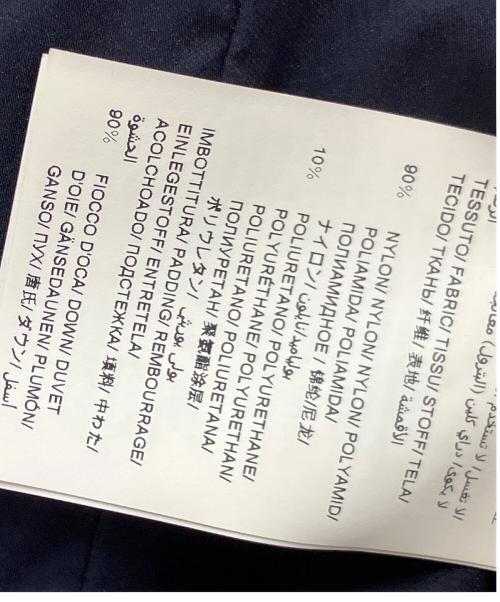 TESSUTO/ FABRIC/ TISSU/ STOFF/ TELA/
TECIDO/ ТКАНЬ/ 纤维/ 表地/ الأقمشة
90%
NYLON/ NYLON/ NYLON/ POLYAMID/
POLIAMIDA/ POLIAMIDA/
ПОЛИАМИДНОЕ / 锦纶/尼龙/
ナイロン/ بولياميد/نايلون
10%
POLIURETANO/ POLYURETHANE/
POLYURÉTHANE/ POLYURETHAN/
POLIURETANO/ POLIURETANA/
ПОЛИУРЕТАН/ 聚氨酯涂层/
ポリウレタン/
IMBOTTITURA/ PADDING/ REMBOURRAGE/
EINLEGESTOFF/ ENTRETELA/
ACOLCHOADO/ ПОДСТЕЖКА/ 填料/ 中わた/
الحشوة
90%
FIOCCO D'OCA/ DOWN/ DUVET
D'OIE/ GÄNSEDAUNEN/ PLUMÓN/
GANSO/ ПУХ/ ダウン/